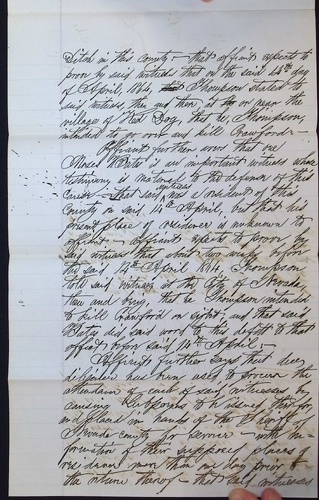 Ditch in this county – that affiant expects to
prove by said witness that on the said 14th day
of April, 1864, Thompson stated to
said witness, then and there, at or near the
village of Red Dog, that he, Thompson,
intended to go over and kill Crawford –
Affiant further avers that one
Moses Bates is an important witness whose
testimony is material to the defense of this
cause – that said witness was a resident of this
County on said 14th April, but that his
present place of residence is unknown to
affiant – affiant expects to prove by
said witness that about two weeks before
the said 14th April 1864, Thompson
told said witness in the City of Nevada,
then and being, that he Thompson intended
to kill Crawford on sight, and that said
Bates did send word to this deft to that
effect before said 14th April –
Affiant further says that due
diligence has been used, to procure the
attendance of each of said witnesses by
causing subpoenas to be issued therefor
and placed in hands of the Sheriff of
Nevada county for service – with in-
formation of their supposed places of
residence more than one day prior to
the return thereof – that said witnesses